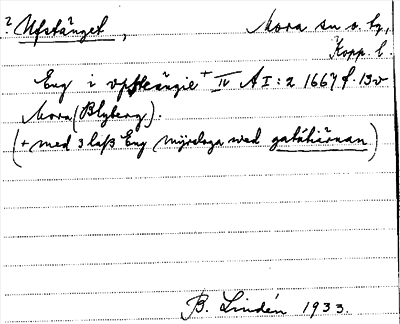 ? Ufstänget, Mora sn o. tg,
Kopp. l.
Eng i upstängie + IV A I: 2 1664 f. 13v
Mora (Blyberg).
(+ med 3 laß Eng myrsloga wed gatåhiärnan)
B. Lindén 1933.